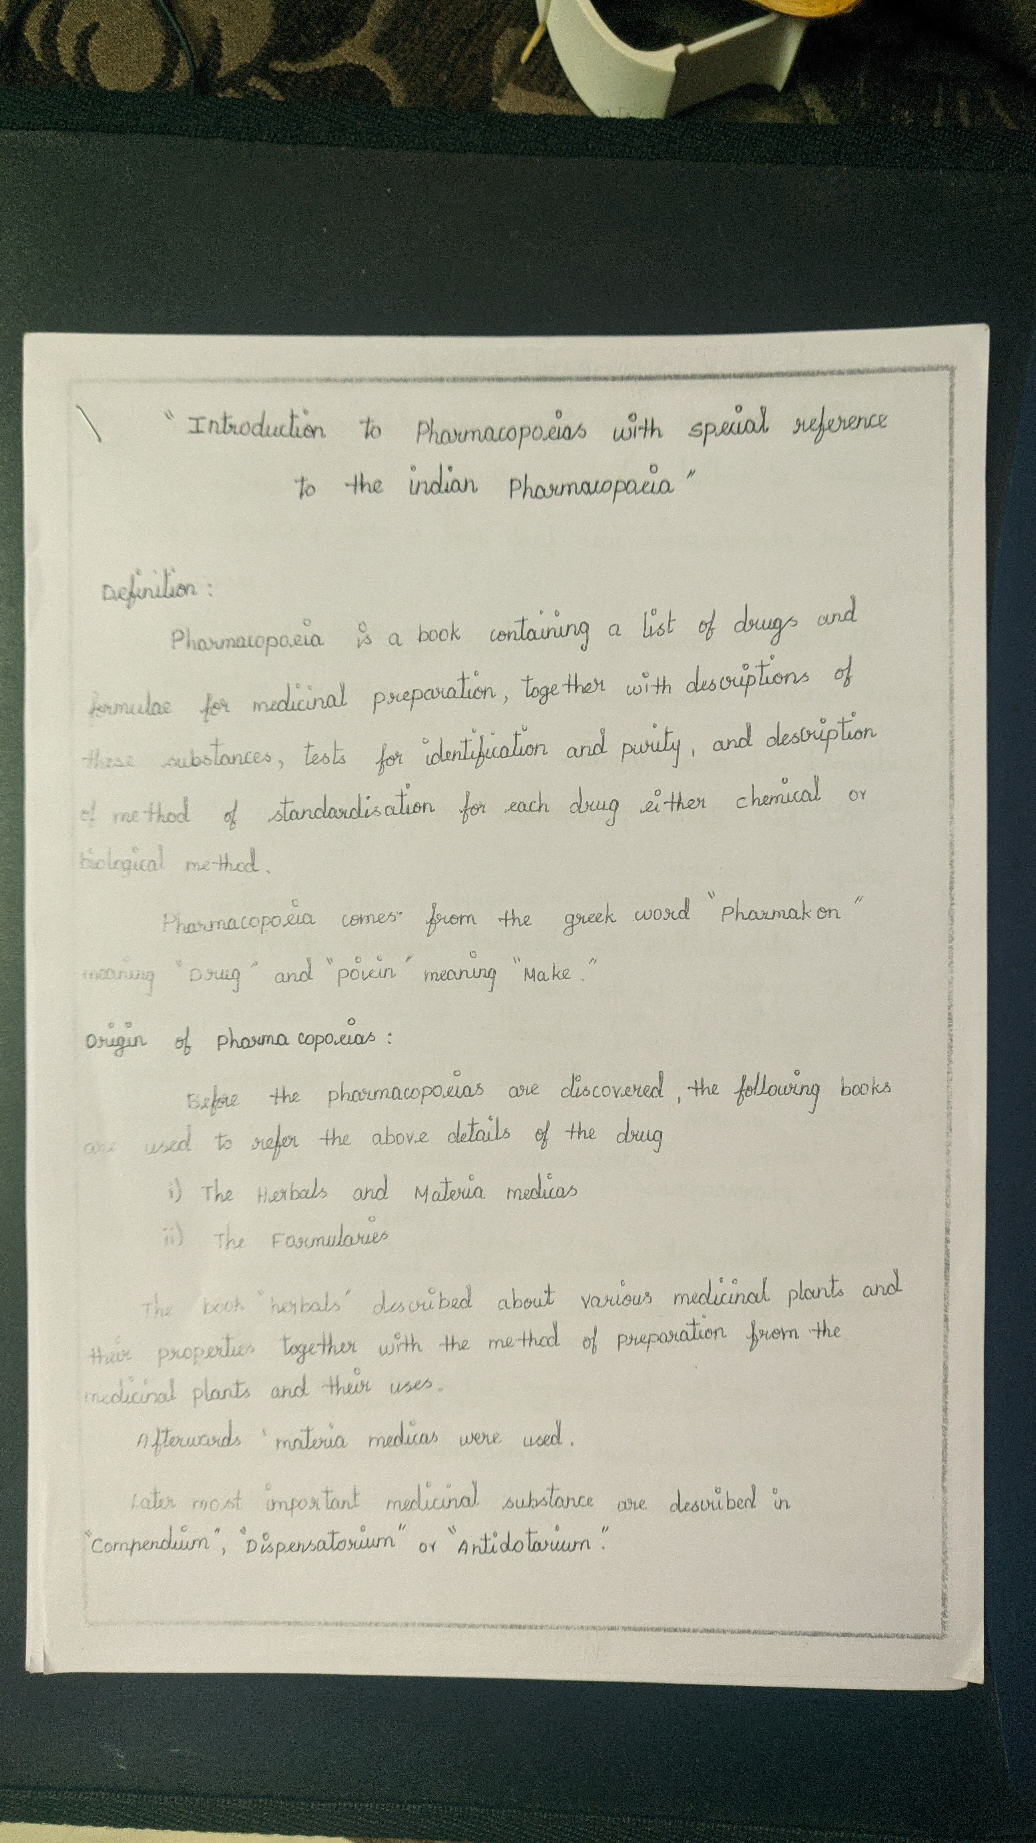 " Introduction to Pharmacopoeias with special reference
to the indian Pharmacopoeia "
Definition :
Pharmacopoeia is a book containing a list of drugs and
formulae for medicinal preparation, together with descriptions of
these substances, tests for identification and purity, and description
of method of standardisation for each drug either chemical or
biological method.
Pharmacopoeia comes from the greek word "Pharmakon"
meaning "Drug" and "poiein" meaning "Make."
Origin of pharmacopoeias :
Before the pharmacopoeias are discovered, the following books
are used to refer the above details of the drug
i) The Herbals and Materia medicas
ii) The Formularies
The book "herbals" described about various medicinal plants and
their properties together with the method of preparation from the
medicinal plants and their uses.
Afterwards 'materia medicas were used.
Later most important medicinal substance are described in
"Compendium", "Dispensatorium" or "Antidotarium".